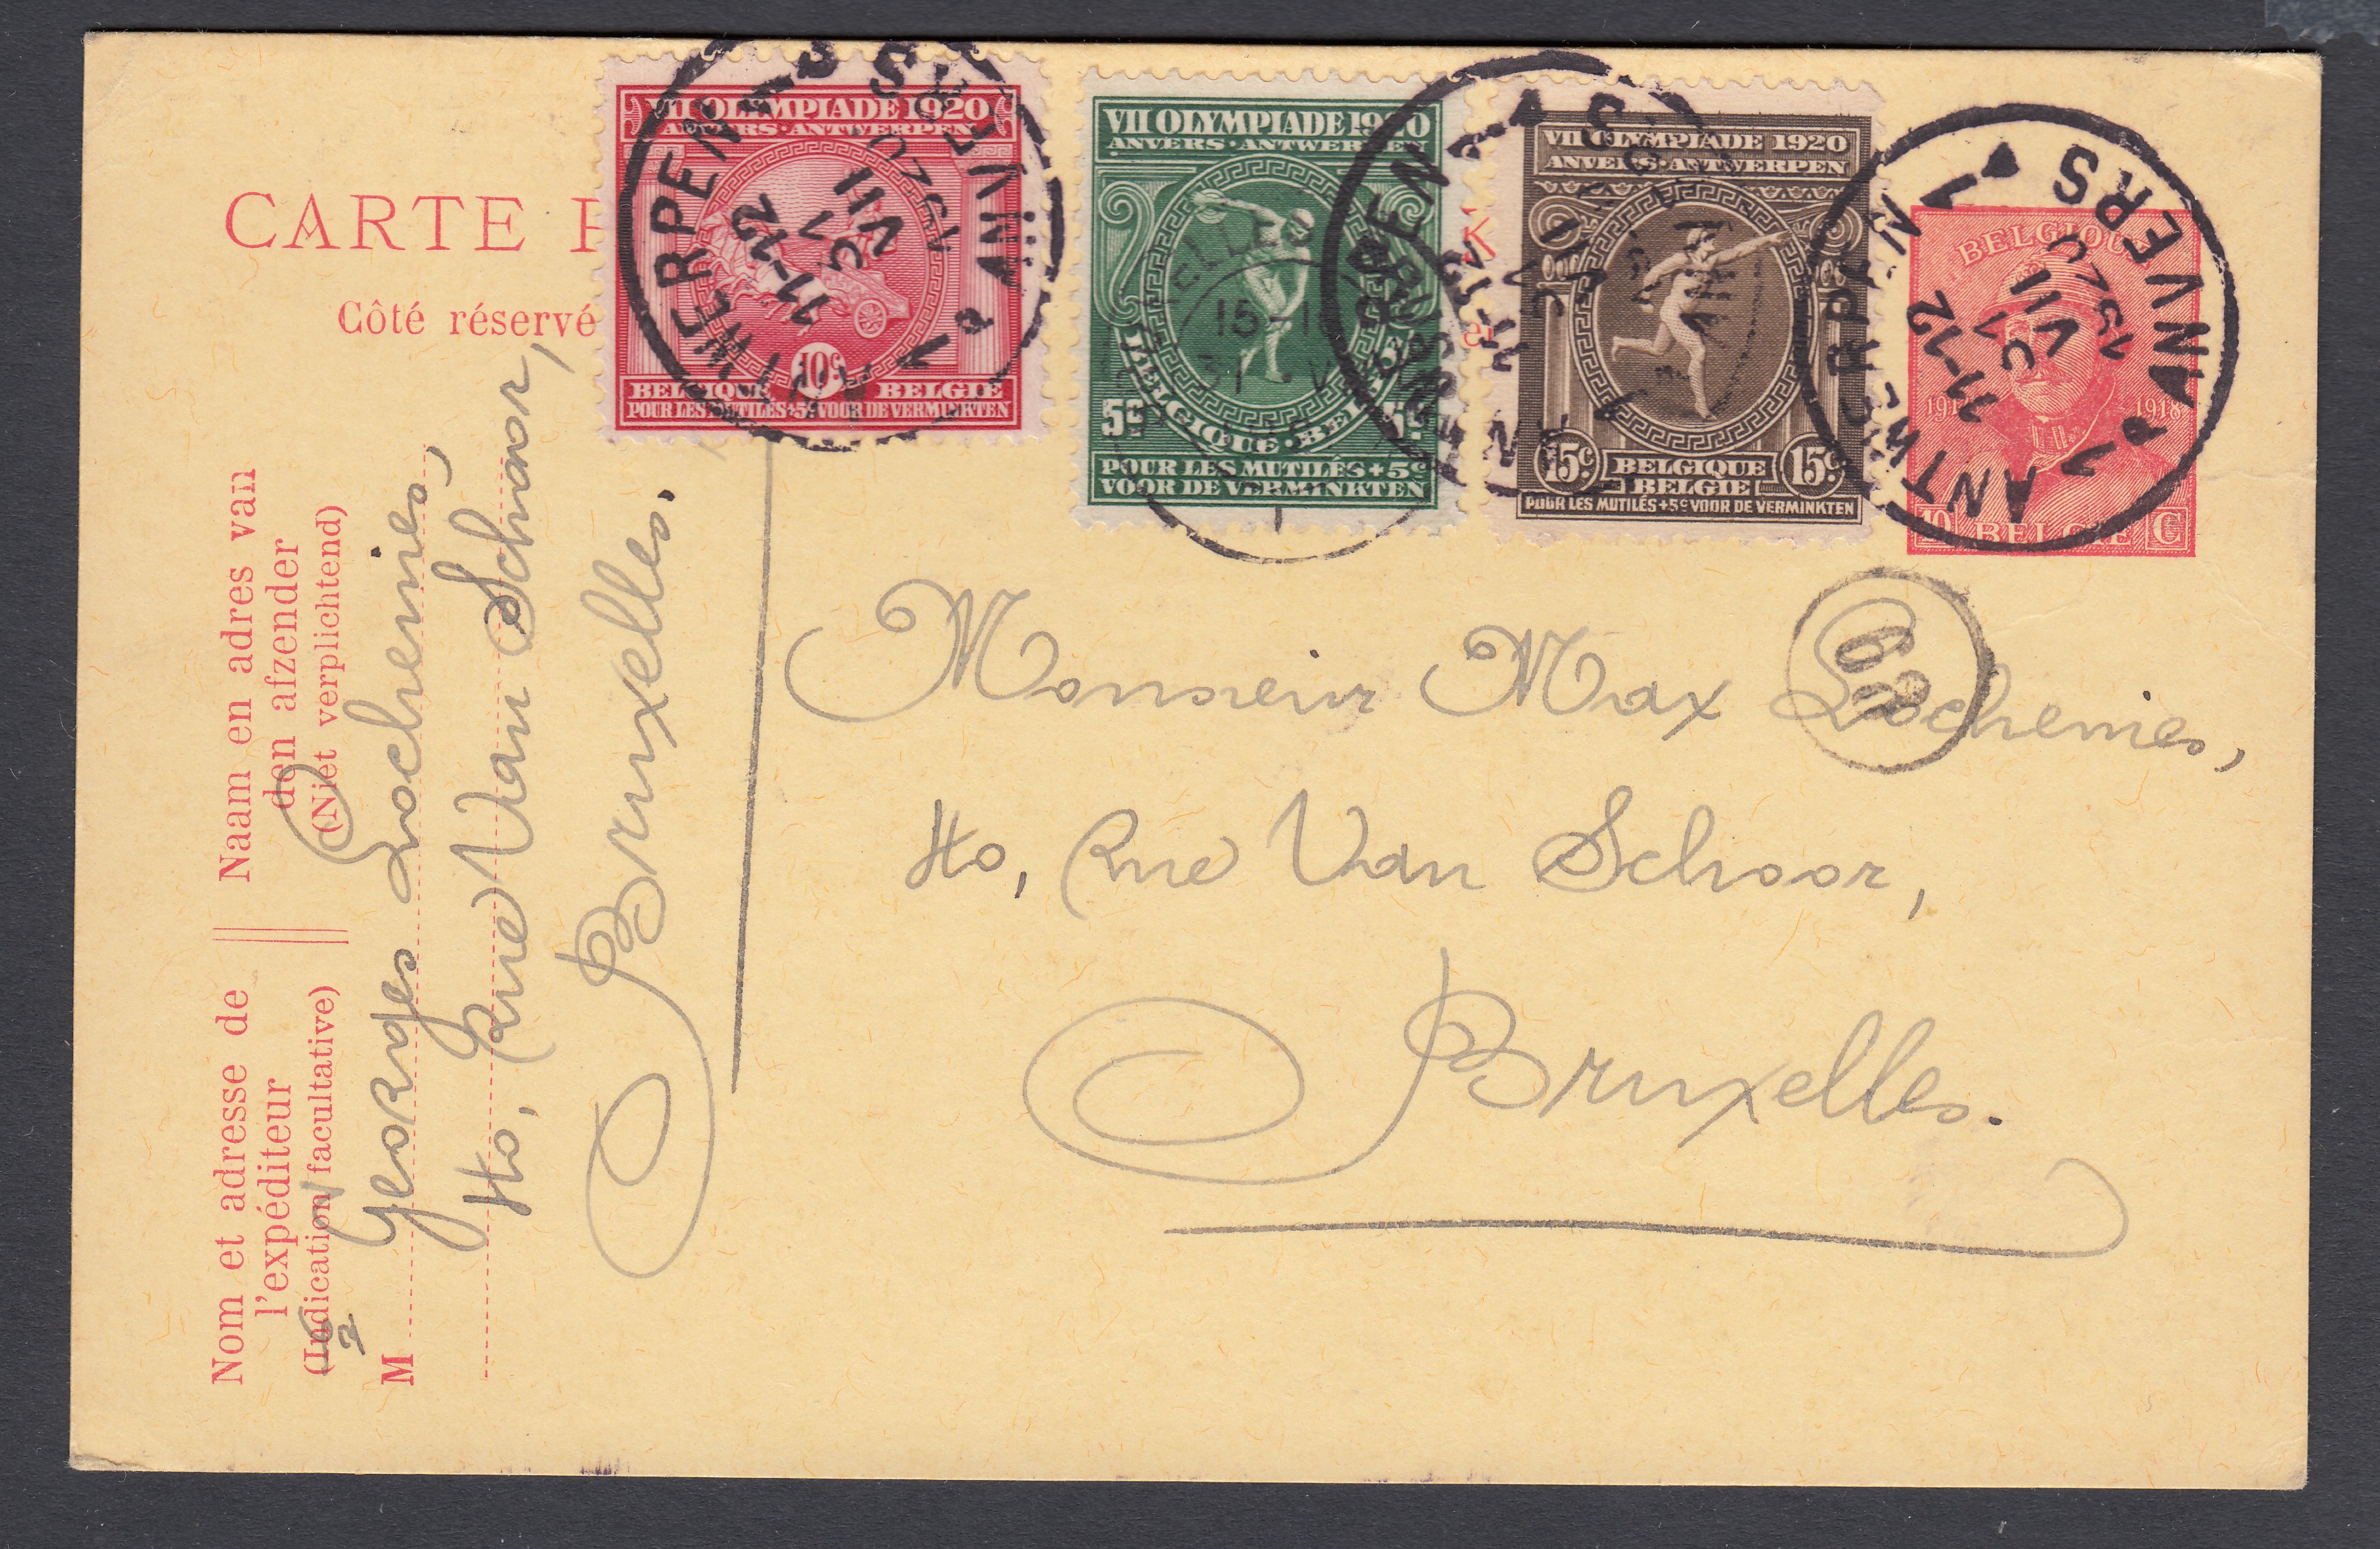 CARTE P
Côté réservé
VII OLYMPIADE 1920
ANVERS·ANTWERPEN
10c
BELGIQUE BELGIE
POUR LES MUTILÉS+5c VOOR DE VERMINKTEN
VII OLYMPIADE 1920
ANVERS·ANTWERPEN
5c
BELGIQUE·BELGIË
5c
POUR LES MUTILÉS+5c
VOOR DE VERMINKTEN
VII OLYMPIADE 1920
ANVERS·ANTWERPEN
15c BELGIQUE 15c
BELGIE
POUR LES MUTILÉS+5c VOOR DE VERMINKTEN
BELGIQUE
1918
10 BELGIE C
ANTWERPEN 1
11-12
VII
1920
1P ANVERS
ANTWERPEN 1
11-12
ANTWERPEN 1
11-12
VII
1920
1P ANVERS
69
Naam en adres van
den afzender
(Niet verplichtend)
Nom et adresse de
l'expéditeur
(Indication facultative)
M Georges Lochemies,
40, Rue Van Schoor,
Bruxelles.
Monsieur Max Lochemies,
40, Rue Van Schoor,
Bruxelles.